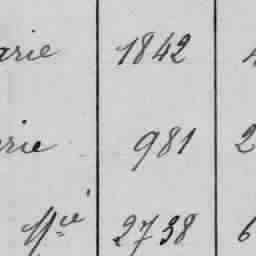 arie 1842 4
rie 981 2
Mie 2738 6